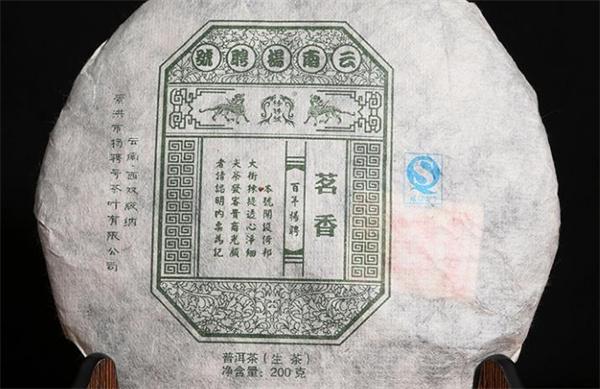 云南楊聘號
茗香
百年楊聘
本號開設倚邦
大街揀提透心淨細
尖茶發客貴商光顧
者請認明內票為記
云南·西双版纳
景洪市杨聘号茶叶有限公司
普洱茶(生茶)
净含量:200克